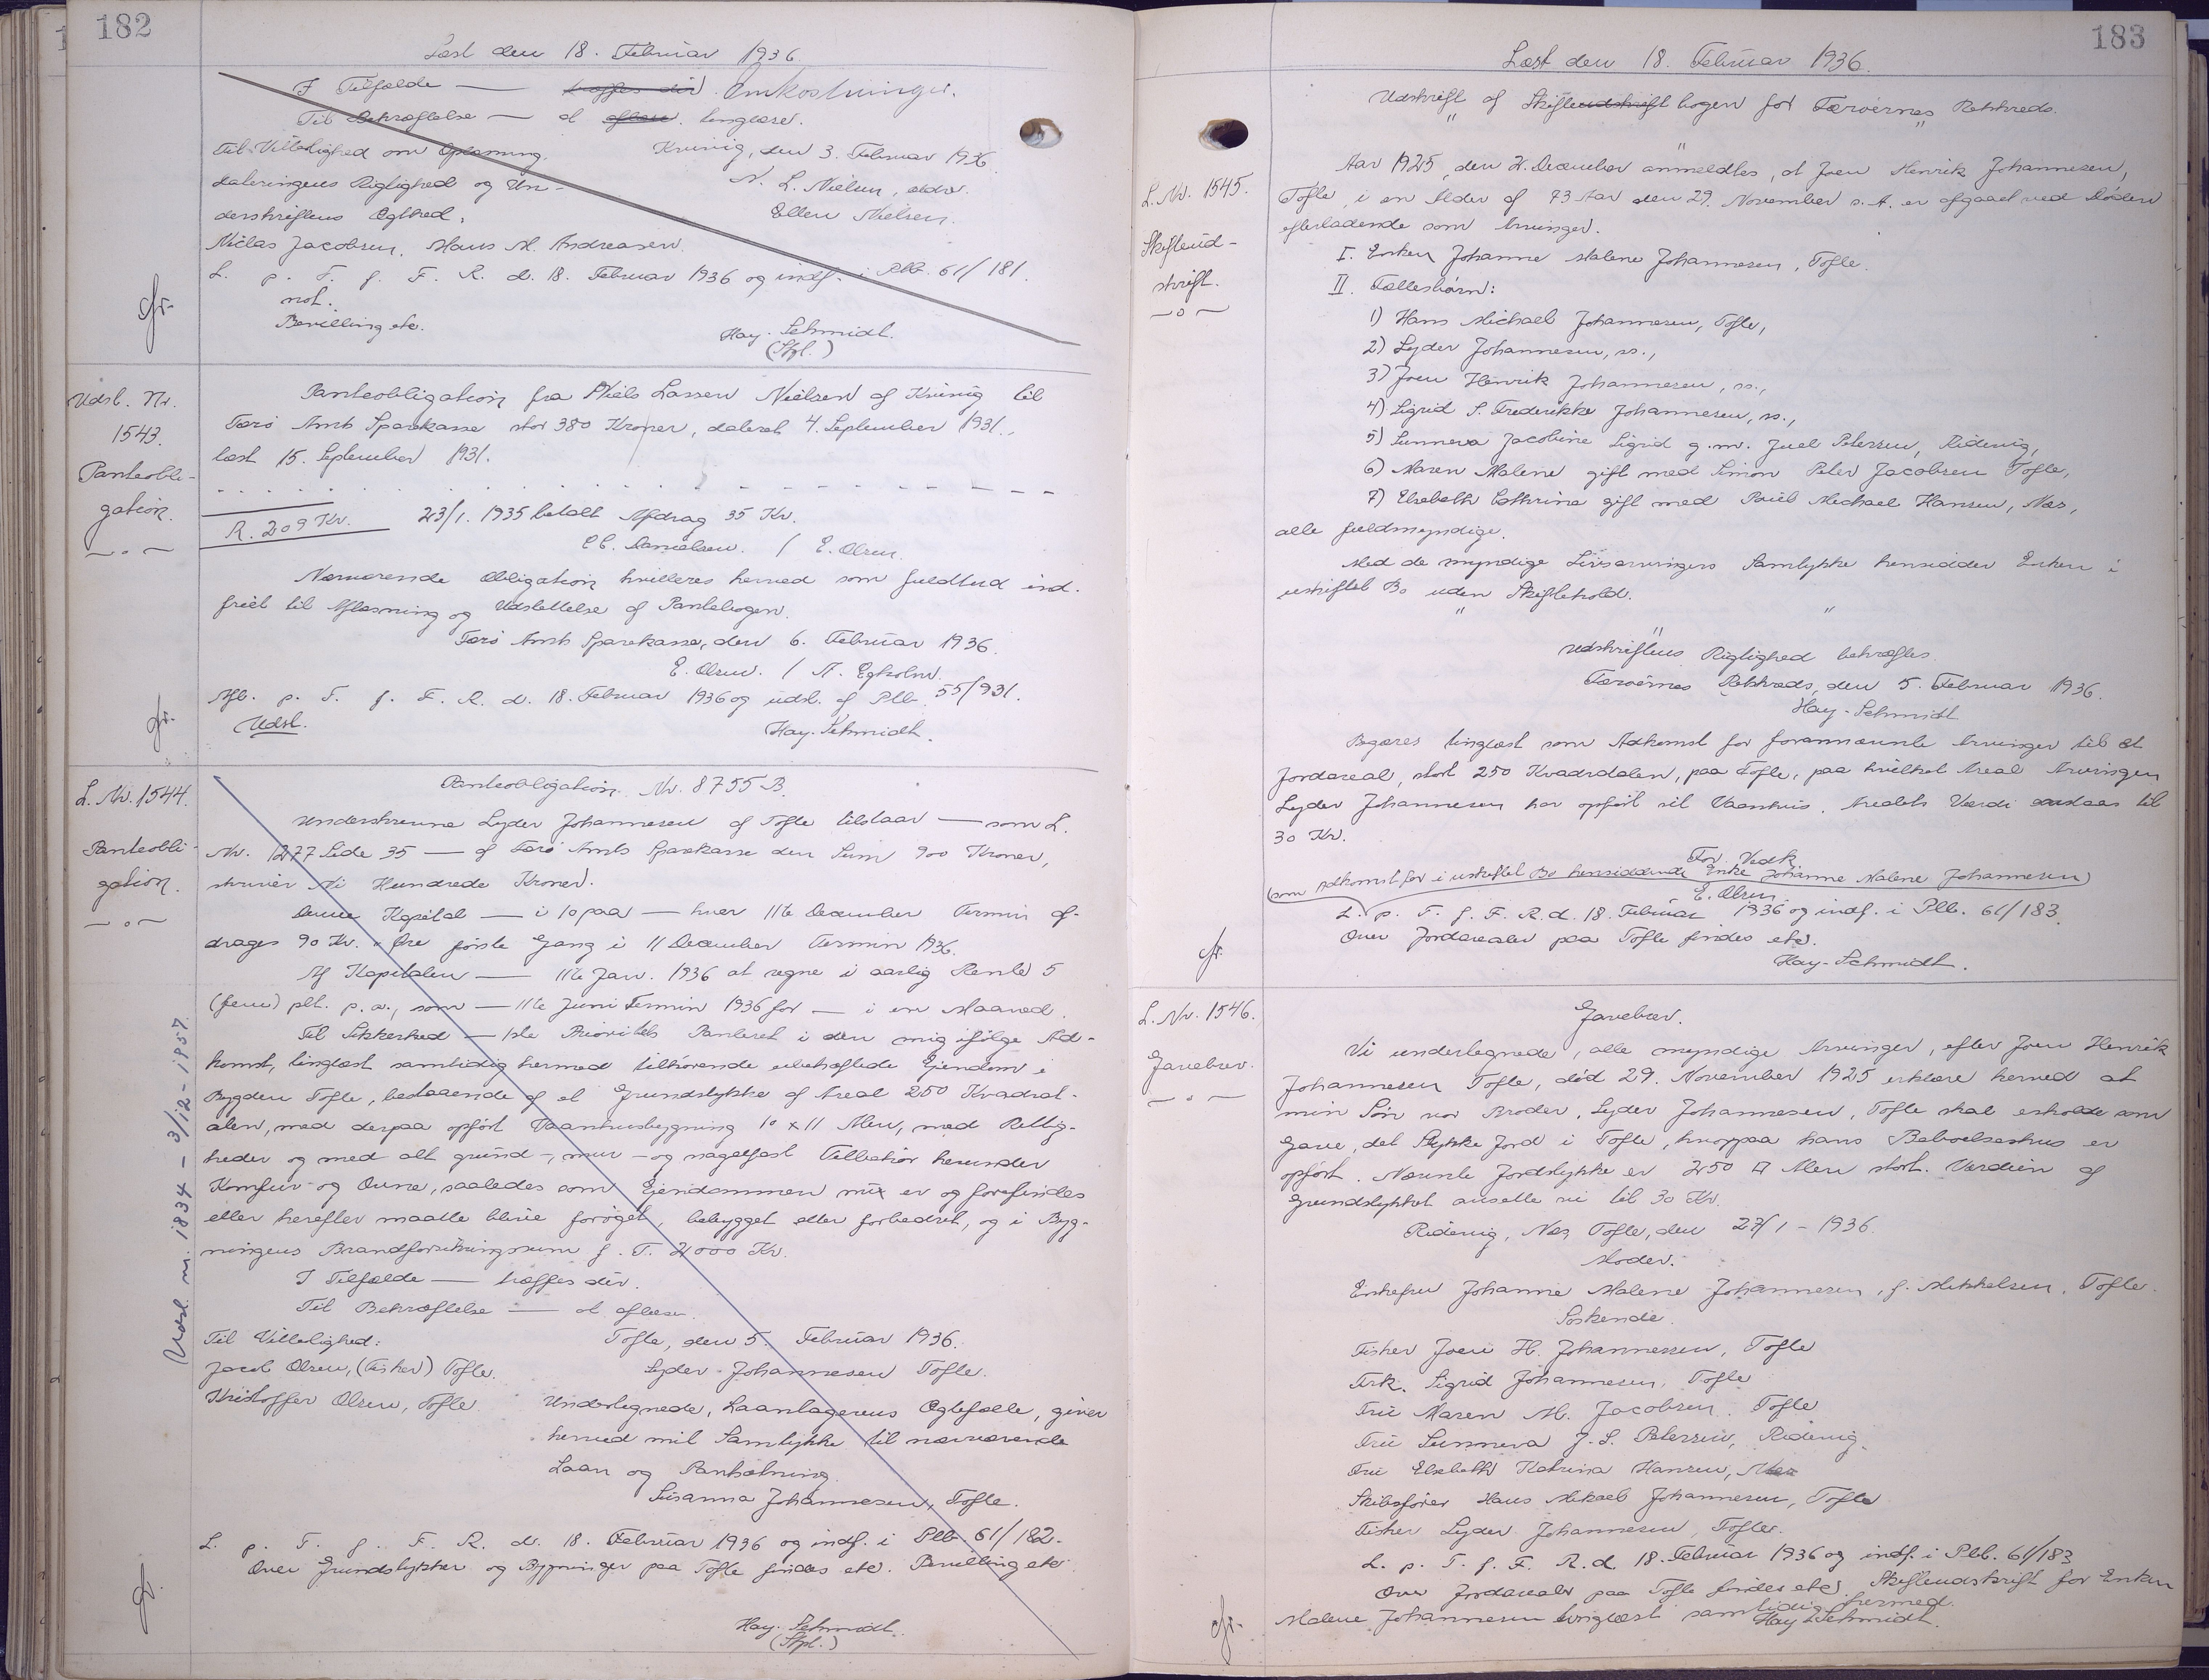 182
Læst den 18. Februar 1936.
I Tilfælde — træffes der. Omkostninger.
Til Bekræftelse — at aflæse. tinglæse.
Til Vitterlighed om Opløsning, Kvivig, den 3. Februar 1936.
dateringens Rigtighed og Un- N. L. Nielsen, ældre.
derskriftens Ægthed. Ellen Nielsen.
Niclas Jacobsen. Hans M. Andreasen.
L. p. T. f. F. R. d. 18. Februar 1936 og indf. i Pltb. 61/181.
not.
Bevilling etc.
Hay-Schmidt.
(Stpl.)
Udsl. Nr.
1543.
Panteobli-
gation.
Panteobligation fra Niels Lassen Nielsen af Kvivig til
Færø Amts Sparekasse stor 380 Kroner, dateret 4. September 1931.,
læst 15. September 1931.
R. 209 Kr. 23/1. 1935 betalt Afdrag 35 Kr.
C.C. Danielsen. / E. Olsen.
Nærværende Obligation kvitteres herved som fuldtud ind-
friet til Aflæsning og Udslettelse af Pantebogen.
Færø Amts Sparekasse, den 6. Februar 1936.
E. Olsen. / A. Egholm.
Afl. p. T. f. F. R. d. 18. Februar 1936 og udsl. af Pltb. 55/931.
Udsl.
Hay-Schmidt.
L. Nr. 1544.
Panteobli-
gation.
Panteobligation Nr. 8755 B.
Underskrevne Lyder Johannesen af Tofte tilstaar — som L.
Nr. 1277 Side 35 — af Færø Amts Sparekasse den Sum 900 Kroner,
skriver Ni Hundrede Kroner.
Denne Kapital — i 10 paa — hver 11te December Termin af-
drages 90 Kr. " Øre første Gang i 11 December Termin 1936.
Af Kapitalen — 11te Jan. 1936 at regne i aarlig Rente 5
(fem) pCt. p. a., som — 11te Juni Termin 1936 for — i en Maaned.
Til Sikkerhed — 1ste Prioritets Panteret i den mig ifølge Ad-
komst, tinglæst samtidig hermed tilhørende ubehæftede Ejendom i
Bygden Tofte, bestaaende af et Grundstykke af Areal 250 Kvadrat-
alen, med derpaa opført Vaaningsbygning 10 x 11 Alen, med Rettig-
heder og med alt grund-, mur- og nagelfast Tilbehør herunder
Komfur og Ovne, saaledes som Ejendommen nu er og forefindes
eller herefter maatte blive forøget, bebygget eller forbedret, og i Byg-
ningens Brandforsikringssum f. T. 4000 Kr.
I Tilfælde — træffes der.
Til Bekræftelse — at aflæse.
Til Vitterlighed: Tofte, den 5. Februar 1936.
Jacob Olsen, (Fisker) Tofte. Lyder Johannesen Tofte.
Kristoffer Olsen, Tofte Undertegnede, Laantagerens Ægtefælle, giver
herved mit Samtykke til nærværende
Laan og Pantsætning.
Susanna Johannesen, Tofte.
L. p. T. f. F. R. d. 18. Februar 1936 og indf. i Pltb. 61/182.
Over Grundstykker og Bygninger paa Tofte findes etc. Bevilling etc.
Hay-Schmidt.
(Stpl.)
Udsl. nr. 1834 - 3/12-1957.
183
Læst den 18. Februar 1936.
Udskrift af Skifteudskrift bogen for Færøernes Retskreds.
L. Nr. 1545.
Skifteud-
skrift.
Aar 1925, den 4. December anmeldtes, at Joen Henrik Johannesen,
Tofte, i en Alder af 73 Aar den 29. November s. A. er afgaaet ved Døden
efterladende som Arvinger.
I. Enken Johanne Malene Johannesen, Tofte.
II. Fællesbørn:
1) Hans Michael Johannesen, Tofte,
2) Lyder Johannesen, ss.,
3) Joen Henrik Johannesen, ss.,
4) Sigrid S. Frederikke Johannesen, ss.,
5) Sunneva Jacobine Sigrid g. m. Juel Petersen, Ridevig,
6) Maren Malene gift med Simon Peter Jacobsen Tofte,
7) Elsebeth Cathrine gift med Poul Michael Hansen, Næs,
alle fuldmyndige.
Med de myndige Livsarvingers Samtykke hensidder Enken i
uskiftet Bo uden Skiftehold.
Udskriftens Rigtighed bekræftes.
Færøernes Retskreds, den 5. Februar 1936.
Hay-Schmidt
Begæres tinglæst som Adkomst for forannævnte Arvinger til et
Jordareal, stort 250 Kvadratalen, paa Tofte, paa hvilket Areal Arvingen
Lyder Johannesen har opført sit Vaanhus. Arealets Værdi anslaas til
30 Kr.
For Vedk.
(som Adkomst for i uskiftet Bo hensiddende Enke Johanne Malene Johannesen)
E. Olsen
L. p. T. f. F. R. d. 18. Februar 1936 og indf. i Pltb. 61/183.
Over Jordarealer paa Tofte findes etc.
Hay-Schmidt.
L. Nr. 1546.
Gavebrev.
Gavebrev.
Vi undertegnede, alle myndige Arvinger, efter Joen Henrik
Johannesen Tofte, død 29. November 1925 erklære herved at
min Søn vor Broder, Lyder Johannesen, Tofte skal erholde som
Gave, det Stykke Jord i Tofte, hvorpaa hans Beboelseshus er
opført. Nævnte Jordstykke er 250 □ Alen stort. Værdien af
Grundstykket ansætte vi til 30 Kr.
Ridevig, Næs, Tofte, den 27/1 - 1936.
Moder:
Enkefru Johanne Malene Johannesen, f. Mikkelsen, Tofte.
Søskende.
Fisker Joen H. Johannesen, Tofte
Frk. Sigrid Johannesen, Tofte
Fru Maren M. Jacobsen. Tofte
Fru Sunneva J. S. Petersen, Ridevig.
Fru Elsebeth Katrina Hansen, Næs
Skibsfører Hans Mikael Johannesen, Tofte
Fisker Lyder Johannesen, Tofte.
L. p. T. f. F. R. d. 18. Februar 1936 og indf. i Pltb. 61/183
Over Jordarealer paa Tofte findes etc. Skifteudskrift for Enken
Malene Johannesen tinglæst samtidig hermed.
Hay-Schmidt.